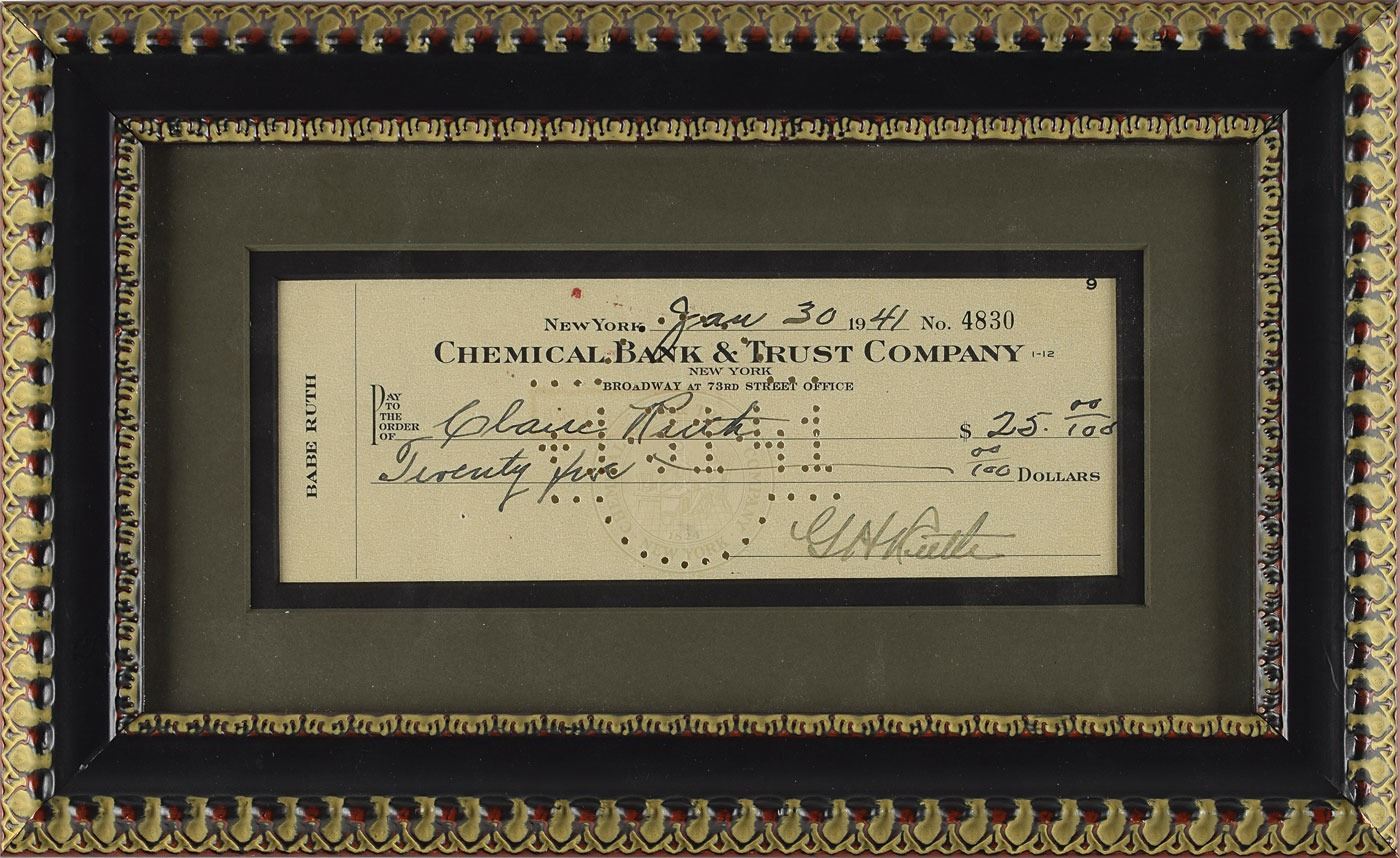 9
New York, Jan 30 1941 No. 4830
Chemical Bank & Trust Company 1-12
NEW YORK
BROADWAY AT 73RD STREET OFFICE
PAY TO THE ORDER OF Claire Ruth $ 25. 00/100
Twenty five 00/100 Dollars
G H Ruth
BABE RUTH
NEW YORK
1824